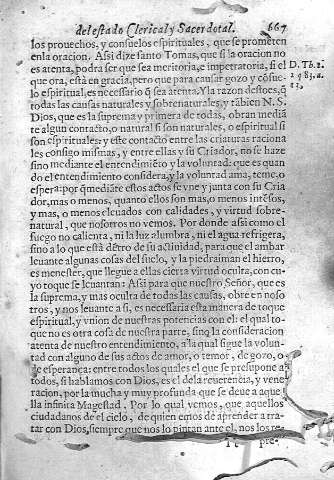 del estado Clerical, y Sacerdotal. 667
los prouechos, y consuelos espirituales, que se prometen
en la oracion. Assi dize santo Tomas, que si la oracion no
es atenta, podra ser que sea meritoria, e impetratoria, si el D. Th. 2.
que ora, està en gracia, pero que para causar gozo y cōsue- 2. q. 83. a.
lo espiritual, es necessario q̃ sea atenta. Y la razon destoes, q̃ 13.
todas las causas naturales y sobrenaturales, y tābien N. S.
Dios, que es la suprema y primera de todas, obran mediā
te algun contacto, o natural si son naturales, o espiritual si
son espirituales: y este contacto entre las criaturas raciona
les consigo mismas, y entre ellas y su Criador, no se haze
sino mediante el entendimiēto y la voluntad: que es quan
do el entendimiento considera, y la voluntad ama, teme, o
espera: por q̃ mediāte estos actos se vne y junta con su Cria
dor, mas o menos, quanto ellos son, mas o menos intēsos,
y mas, o menos eleuados con calidades, y virtud sobre-
natural, que nosotros no vemos. Por donde assi como el
fuego no calienta, ni la luz alumbra, ni el agua refrigera,
sino a lo que està dētro de su actiuidad, para que el ambar
leuante algunas cosas del suelo, y la piedraiman el hierro,
es menester, que llegue a ellas cierta virtud oculta, con cu-
yo toque se leuantan: Assi para que nuestro Señor, que es
la suprema, y mas oculta de todas las causas, obre en noso
tros, y nos leuante a si, es necessaria esta manera de toque
espiritual, y vnion de nuestras potencias con el: el qual to-
que no es otra cosa de nuestra parte, sino la consideracion
atenta de nuestro entendimiento, a la qual sigue la volun-
tad con alguno de sus actos de amor, o temor, de gozo, o
de esperança: entre todos los quales el que se presupone a
todos, si hablamos con Dios, es el de la reuerencia, y vene
racion, por la mucha y muy profunda que se deue a aque
lla infinita Magestad. Por lo qual vemos, que aquellos
ciudadanos de el cielo, de quien emos de aprender a tra-
tar con Dios, siempre que nos lo pintan ante el, nos los re-
Tt pre-